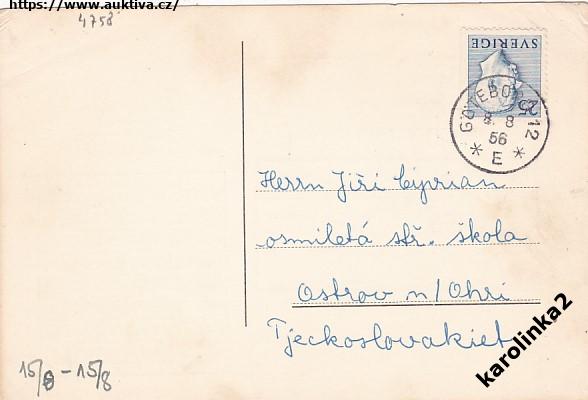 https://www.auktiva.cz/
4758
SVERIGE
25
GÖTEBORG 12
8. 8
56
* E *
Herrn Jiří Ciprian
osmiletá stř. škola
Ostrov n/Ohri
Tjeckoslovakiet
15/8 - 15/8
karolinka2